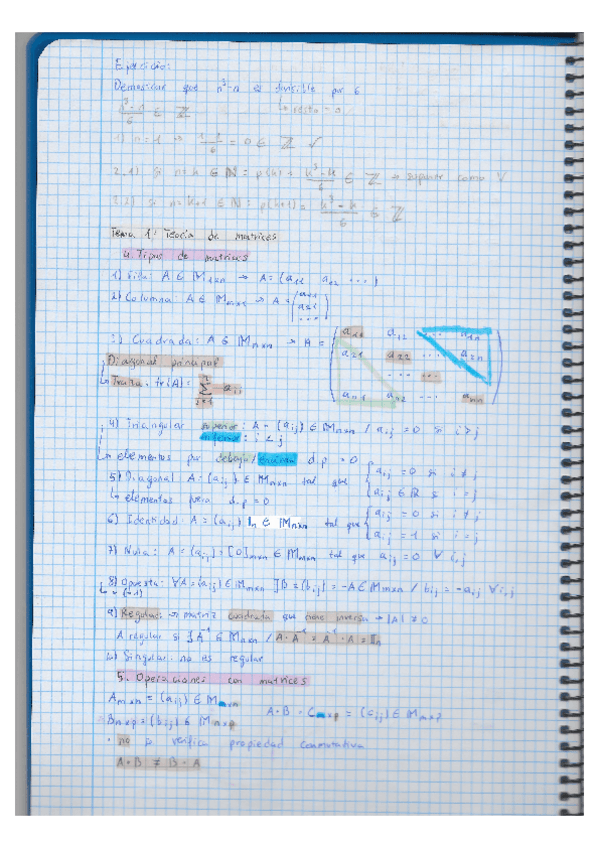 Ejercicio:
Demostrar que n³-n es divisible por 6
↳ resto = 0
n³-n/6 ∈ ℤ
1) n=1 → 1-1/6 = 0 ∈ ℤ ✓
2.1) si n=k ∈ ℕ : p(k) = k³-k/6 ∈ ℤ → suponer como V
2.2) si n=k+1 ∈ ℕ : p(k+1) = k³-k/6 ∈ ℤ
Tema 1: Teoría de matrices
4. Tipos de matrices
1) Fila: A ∈ M₁ₓₙ → A = (a₁₁ a₁₂ ...)
2) Columna: A ∈ Mₘₓ₁ → A = (a₁₁ a₂₁ ...)
3) Cuadrada: A ∈ Mₙₓₙ → A = (a₁₁ a₁₂ ... a₁ₙ
a₂₁ a₂₂ ... a₂ₙ
... ...
aₙ₁ aₙ₂ ... aₙₙ)
Diagonal principal
↳ Traza: tr(A) = Σ
4) Triangular superior: A = (aᵢⱼ) ∈ Mₙₓₙ / aᵢⱼ = 0 si i > j
inferior: i < j
↳ elementos por debajo/encima d.p = 0
5) Diagonal A = (aᵢⱼ) ∈ Mₙₓₙ tal que { aᵢⱼ = 0 si i ≠ j
aᵢⱼ ∈ ℝ si i = j
↳ elementos fuera d.p = 0
6) Identidad A = (aᵢⱼ) Iₙ ∈ Mₙₓₙ tal que { aᵢⱼ = 0 si i ≠ j
aᵢⱼ = 1 si i = j
7) Nula: A = (aᵢⱼ) = [0]ₘₓₙ ∈ Mₘₓₙ tal que aᵢⱼ = 0 ∀ i,j
8) Opuesta: ∀A = (aᵢⱼ) ∈ Mₘₓₙ ∃B = (bᵢⱼ) = -A ∈ Mₘₓₙ / bᵢⱼ = -aᵢⱼ ∀ i,j
↳ × (-1)
9) Regular: → matriz cuadrada que tiene inversa → |A| ≠ 0
A regular si ∃A⁻¹ ∈ Mₙₓₙ / A·A⁻¹ = A⁻¹·A = Iₙ
10) Singular: no es regular
5. Operaciones con matrices
Aₘₓₙ = (aᵢⱼ) ∈ Mₘₓₙ
A·B = Cₘₓₚ = (cᵢⱼ) ∈ Mₘₓₚ
Bₙₓₚ = (bᵢⱼ) ∈ Mₙₓₚ
· no se verifica propiedad conmutativa
A·B ≠ B·A